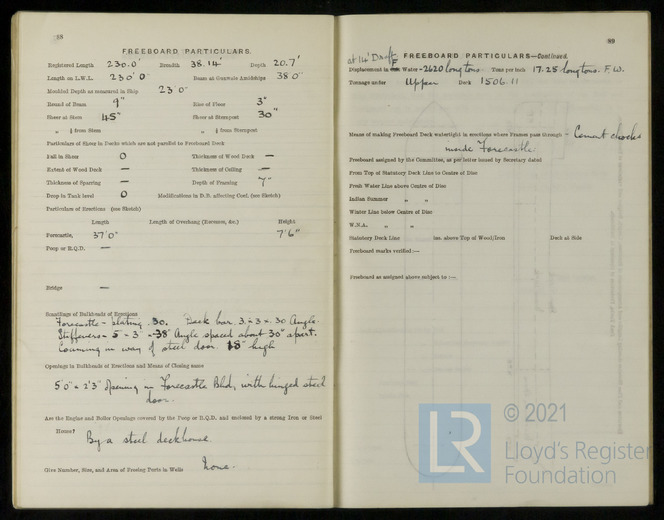 88
FREEBOARD PARTICULARS.
Registered Length 230.0' Breadth 38.14' Depth 20.7'
Length on L.W.L. 230'0" Beam at Gunwale Amidships 38'0"
Moulded Depth as measured in Ship 23'0"
Round of Beam 9" Rise of Floor 3"
Sheer at Stem 45" Sheer at Sternpost 30"
„ ⅛ from Stem „ ⅛ from Sternpost
Particulars of Sheer in Decks which are not parallel to Freeboard Deck
Fall in Sheer 0 Thickness of Wood Deck —
Extent of Wood Deck — Thickness of Ceiling —
Thickness of Sparring — Depth of Framing 7"
Drop in Tank level 0 Modifications in D.B. affecting Coef. (see Sketch)
Particulars of Erections (see Sketch)
Length Length of Overhang (Recesses, &c.) Height
Forecastle, 37'0" 7'6"
Poop or R.Q.D. —
Bridge —
Scantlings of Bulkheads of Erections
Forecastle - plating .30. Deck bar 3 × 3 × .30 Angle.
Stiffeners - 5 × 3 × .38 Angle spaced about 30" apart.
Coaming in way of steel door 18" high
Openings in Bulkheads of Erections and Means of Closing same
5'0" × 2'3" Opening in Forecastle Bhd, with hinged steel
door.
Are the Engine and Boiler Openings covered by the Poop or R.Q.D. and enclosed by a strong Iron or Steel
House?
By a steel deckhouse
Give Number, Size, and Area of Freeing Ports in Wells None.
89
at 14' Draft
FREEBOARD PARTICULARS—Continued.
Displacement in F Water - 2620 long tons. Tons per inch 17.25 long tons. F.W.
Tonnage under Upper Deck 1506.11
Means of making Freeboard Deck watertight in erections where Frames pass through - Cement chocks
inside Forecastle
Freeboard assigned by the Committee, as per letter issued by Secretary dated
From Top of Statutory Deck Line to Centre of Disc
Fresh Water Line above Centre of Disc
Indian Summer „ „
Winter Line below Centre of Disc
W.N.A. „ „
Statutory Deck Line ins. above Top of Wood/Iron Deck at Side
Freeboard marks verified:—
Freeboard as assigned above subject to :—
LR
© 2021
Lloyd's Register
Foundation